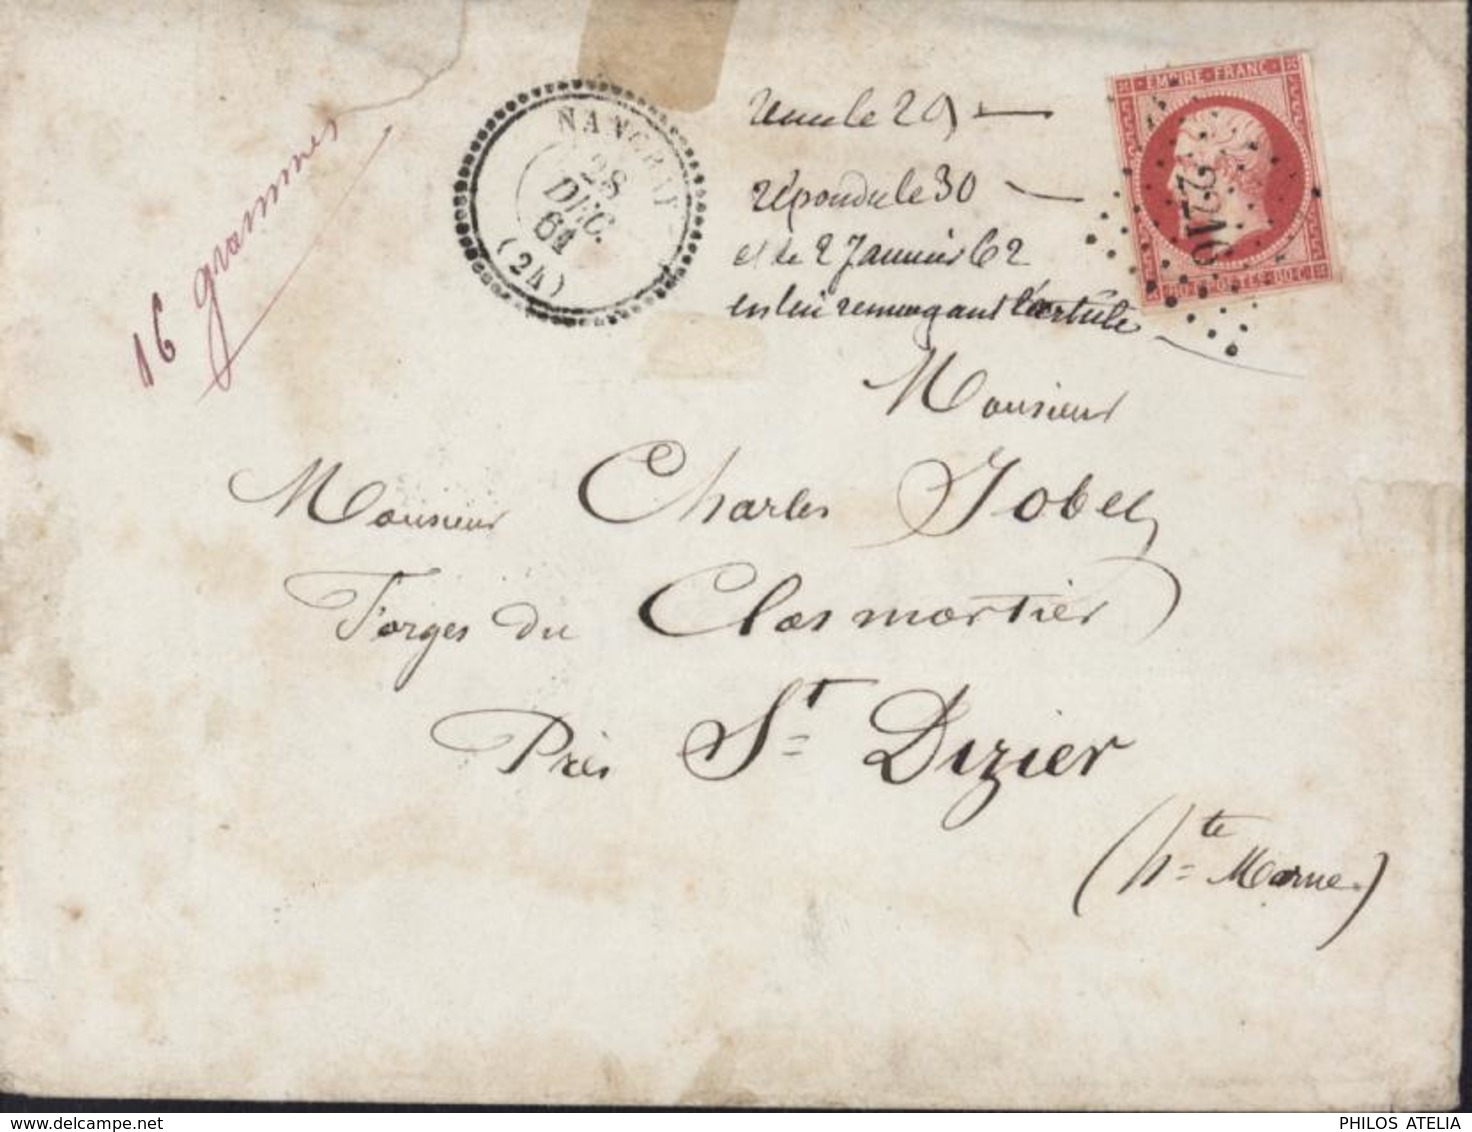 16 grammes
NANÇAY
28
DEC.
61
(24)
Reçu le 29
répondu le 30
et le 2 Janvier 62
en lui renvoyant l'article
EMPIRE FRANC
2210
POSTES 80 C
Monsieur
Monsieur Charles Jobez
Forges du Clos mortier
Près St Dizier
(hte Marne)
PHILOS ATELIA